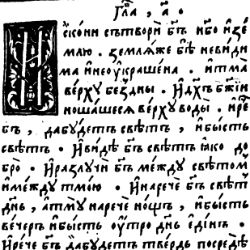 Гла̑, а҃
И сконѝ сътвори бг҃ъ нб҃о и зе
млю. землѧже бѣ̀ невиди
ма и неꙋкрашена. и тма̀
верхꙋ бездны. и дх҃ъ бж҃їи
ношашесѧ верхꙋ воды. и рече
бг҃ъ, дабꙋдетъ свѣтъ, и бысть
свѣтъ. и видѣ бг҃ъ свѣтъ ꙗко до
бро. и разлꙋчи бг҃ъ междꙋ свѣтом
и междꙋ тмою. и нарече бг҃ъ свѣтъ
дн҃ь, а тмꙋ нарече нощь, и бысть
вечеръ и бысть оутро дн҃ь единъ.
И рече бг҃ъ да бꙋдетъ твердь посредѣ